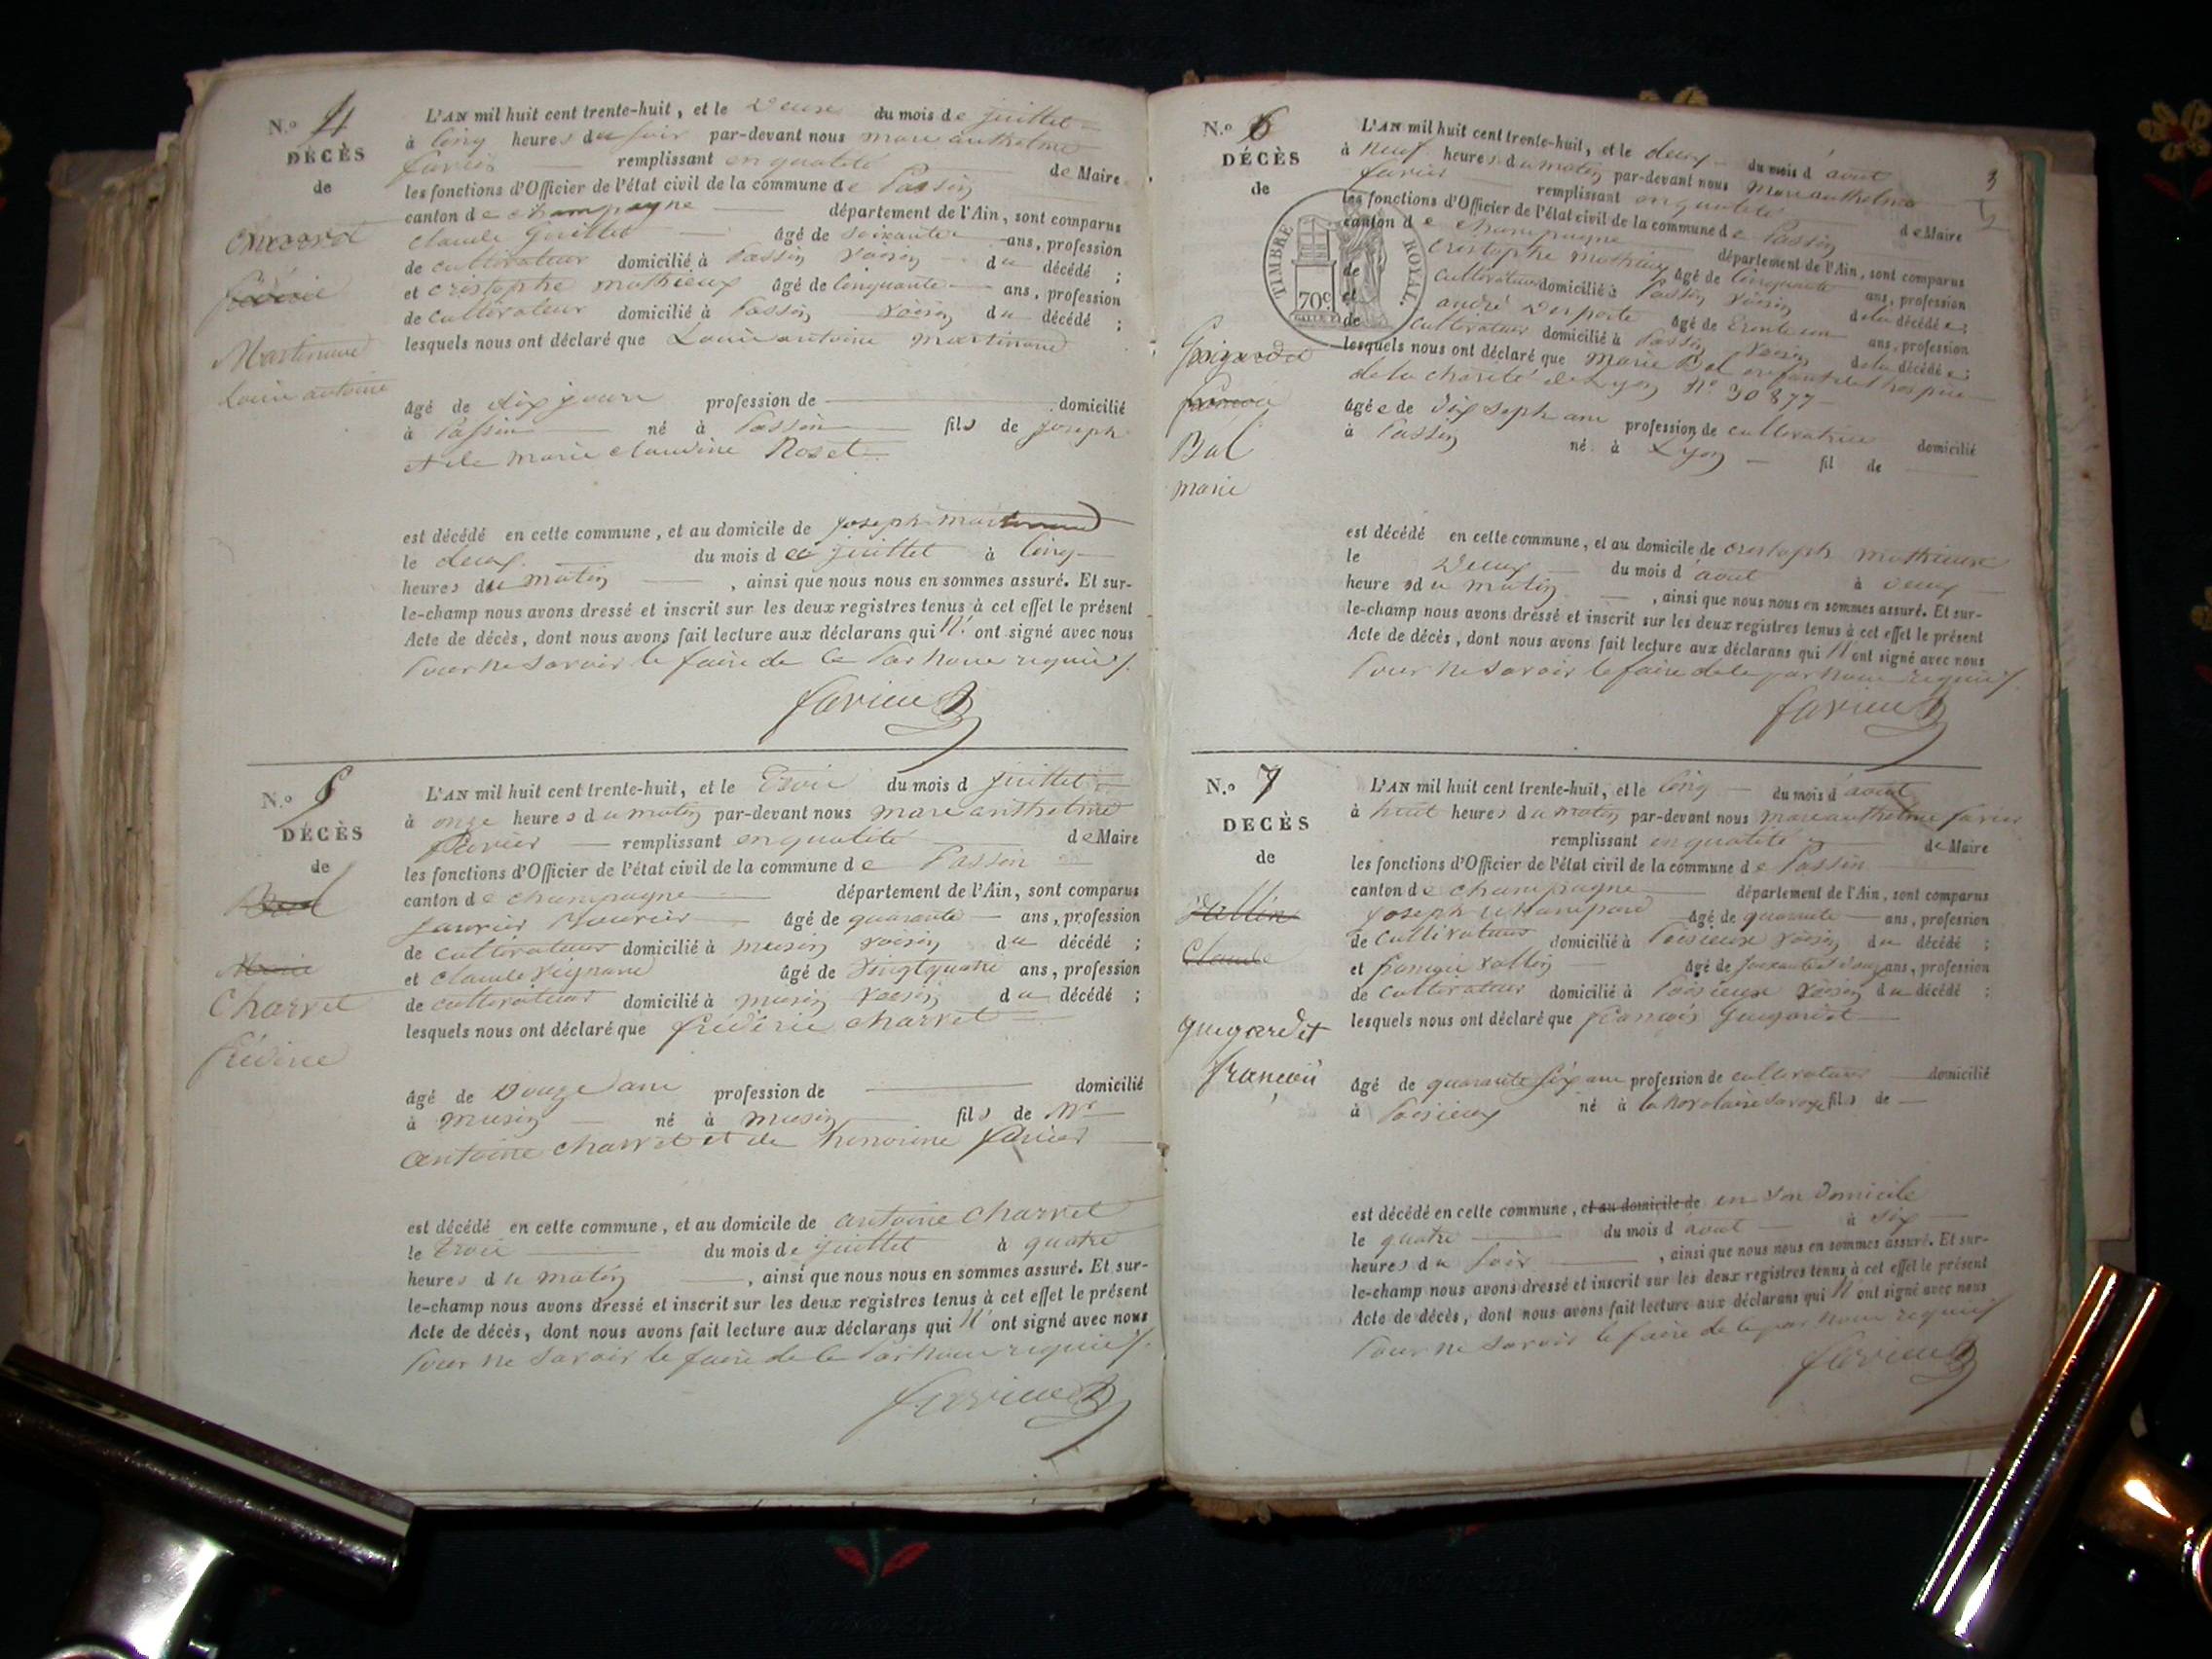 N.o 4
DÉCÈS
de
Charvet
frédéric
Martinand
Louis antoine
L'AN mil huit cent trente-huit, et le deux du mois de juillet
à cinq heures du soir par-devant nous marc anthelme
favier remplissant en qualité de Maire
les fonctions d'Officier de l'état civil de la commune de Passin
canton de champagne département de l'Ain, sont comparus
claude Guillet âgé de soixante ans, profession
de cultivateur domicilié à Passin voisin du décédé ;
et cristophe mathieux âgé de cinquante ans, profession
de cultivateur domicilié à Passin voisin du décédé ;
lesquels nous ont déclaré que Louis antoine martinand
âgé de dix jours profession de domicilié
à Passin né à Passin fils de joseph
et de marie claudine Roset
est décédé en cette commune, et au domicile de joseph martinand
le deux du mois de juillet à cinq
heures du matin , ainsi que nous nous en sommes assuré. Et sur-
le-champ nous avons dressé et inscrit sur les deux registres tenus à cet effet le présent
Acte de décès, dont nous avons fait lecture aux déclarans qui n' ont signé avec nous
Pour ne savoir le faire de ce par nous requis
favier
N.o 5
DÉCÈS
de
Bal
Marie
Charvet
frédéric
L'AN mil huit cent trente-huit, et le trois du mois d juillet
à onze heures du matin par-devant nous marc anthelme
favier remplissant en qualité de Maire
les fonctions d'Officier de l'état civil de la commune de Passin
canton de champagne département de l'Ain, sont comparus
âgé de quarante ans, profession
de cultivateur domicilié à musin voisin du décédé ;
et claude vignand âgé de vingt quatre ans, profession
de cultivateur domicilié à musin voisin du décédé ;
lesquels nous ont déclaré que frédéric charvet
âgé de douze ans profession de domicilié
à musin né à musin fils de Mr
antoine charvet et de honorine favier
est décédé en cette commune, et au domicile de antoine charvet
le trois du mois de juillet à quatre
heures du matin , ainsi que nous nous en sommes assuré. Et sur-
le-champ nous avons dressé et inscrit sur les deux registres tenus à cet effet le présent
Acte de décès, dont nous avons fait lecture aux déclarans qui n' ont signé avec nous
Pour ne savoir le faire de ce par nous requis
favier
3
N.o 6
DÉCÈS
de
TIMBRE ROYAL.
70c
Guigardet
françois
Bal
marie
L'AN mil huit cent trente-huit, et le deux du mois d'août
à neuf heures du matin par-devant nous marc anthelme
favier remplissant en qualité de Maire
les fonctions d'Officier de l'état civil de la commune de Passin
canton de champagne département de l'Ain, sont comparus
cristophe mathieux âgé de cinquante ans, profession
de cultivateur domicilié à Passin voisin de la décédée ;
et andré desporte âgé de trente un ans, profession
de cultivateur domicilié à Passin voisin de la décédée ;
lesquels nous ont déclaré que Marie Bal enfant de l'hospice
de la charité de Lyon No 30877
âgée de dix sept ans profession de cultivatrice domicilié
à Passin né à Lyon fil de
est décédé en cette commune, et au domicile de cristophe mathieux
le deux du mois d'août à deux
heures du matin , ainsi que nous nous en sommes assuré. Et sur-
le-champ nous avons dressé et inscrit sur les deux registres tenus à cet effet le présent
Acte de décès, dont nous avons fait lecture aux déclarans qui n' ont signé avec nous
Pour ne savoir le faire de ce par nous requis
favier
N.o 7
DECÈS
de
Claude
guigardet
françois
L'AN mil huit cent trente-huit, et le cinq du mois d'août
à huit heures du matin par-devant nous marc anthelme favier
remplissant en qualité de Maire
les fonctions d'Officier de l'état civil de la commune de Passin
canton de champagne département de l'Ain, sont comparus
joseph âgé de quarante ans, profession
de cultivateur domicilié à Poisieux voisin du décédé ;
et françois vallin âgé de soixante et douze ans, profession
de cultivateur domicilié à Poisieux voisin du décédé ;
lesquels nous ont déclaré que françois guigardet
âgé de quarante six ans profession de cultivateur domicilié
à Poisieux né à savoye fils de
est décédé en cette commune, et au domicile de en son domicile
le quatre du mois d'août à six
heures du soir , ainsi que nous nous en sommes assuré. Et sur-
le-champ nous avons dressé et inscrit sur les deux registres tenus à cet effet le présent
Acte de décès, dont nous avons fait lecture aux déclarans qui n' ont signé avec nous
Pour ne savoir le faire de ce par nous requis
favier